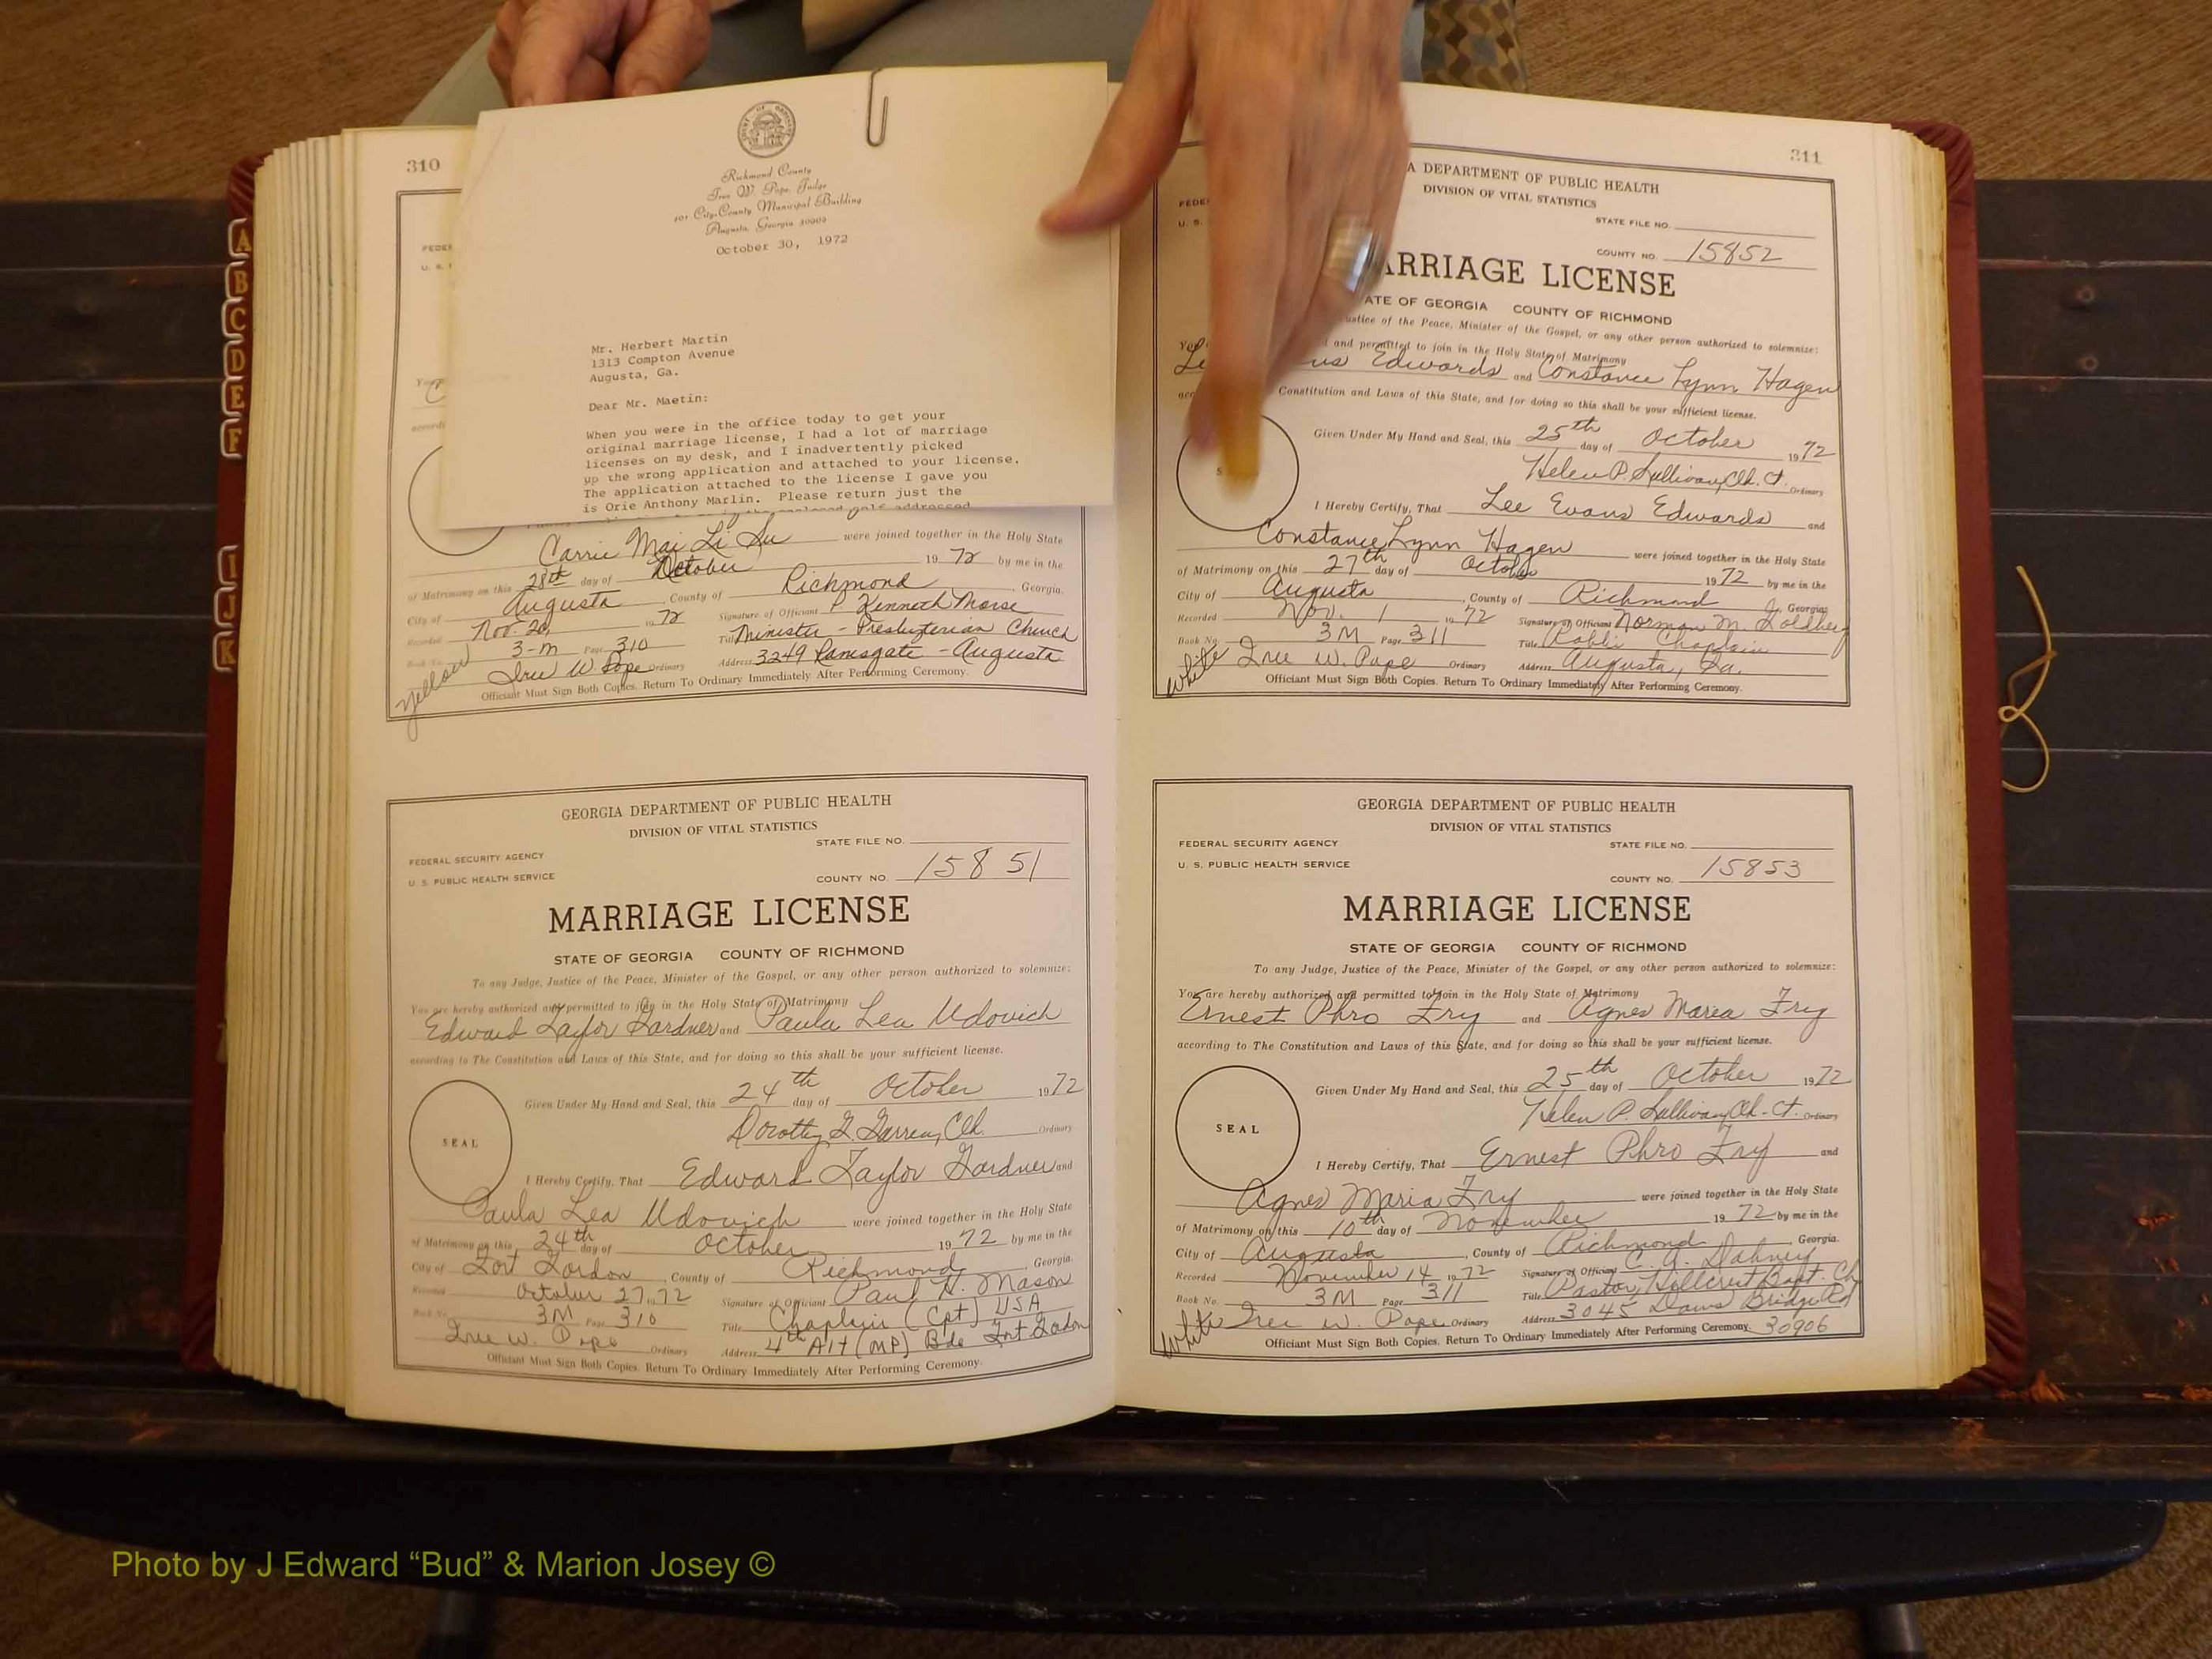 310
FEDE
U. S.
You
C
accordi
OF
Richmond County
Iree W. Pope, Judge
401 City-County Municipal Building
Augusta, Georgia 30902
October 30, 1972
Mr. Herbert Martin
1313 Compton Avenue
Augusta, Ga.
Dear Mr. Maetin:
When you were in the office today to get your
original marriage license, I had a lot of marriage
licenses on my desk, and I inadvertently picked
up the wrong application and attached to your license.
The application attached to the license I gave you
is Orie Anthony Marlin. Please return just the
Carrie Mai Li Su were joined together in the Holy State
of Matrimony on this 28th day of October 19 72 by me in the
City of Augusta , County of Richmond , Georgia.
Recorded Nov. 20, 19 72 Signature of Officiant P. Kenneth Morse
Book No. 3-M Page 310 Title Minister - Presbyterian Church
Iree W. Pope Ordinary Address 3249 Ramsgate - Augusta
Yellow
Officiant Must Sign Both Copies. Return To Ordinary Immediately After Performing Ceremony.
GEORGIA DEPARTMENT OF PUBLIC HEALTH
DIVISION OF VITAL STATISTICS
STATE FILE NO.
FEDERAL SECURITY AGENCY
U. S. PUBLIC HEALTH SERVICE
COUNTY NO. 15851
MARRIAGE LICENSE
STATE OF GEORGIA COUNTY OF RICHMOND
To any Judge, Justice of the Peace, Minister of the Gospel, or any other person authorized to solemnize:
You are hereby authorized and permitted to join in the Holy State of Matrimony
Edward Taylor Gardner and Paula Lea Udovich
according to The Constitution and Laws of this State, and for doing so this shall be your sufficient license.
Given Under My Hand and Seal, this 24th day of October 1972
Dorothy Clk. Ordinary
SEAL
I Hereby Certify, That Edward Taylor Gardner and
Paula Lea Udovich were joined together in the Holy State
of Matrimony on this 24th day of October 19 72 by me in the
City of Fort Gordon , County of Richmond , Georgia.
Recorded October 27 19 72 Signature of Officiant Paul H. Mason
Book No. 3M Page 310 Title Chaplain (Cpt) USA
Iree W. Pope Ordinary Address 4th AIT (MP) Bde Fort Gordon
Officiant Must Sign Both Copies. Return To Ordinary Immediately After Performing Ceremony.
311
A DEPARTMENT OF PUBLIC HEALTH
DIVISION OF VITAL STATISTICS
FEDE
STATE FILE NO.
U. S.
COUNTY NO. 15852
ARRIAGE LICENSE
ATE OF GEORGIA COUNTY OF RICHMOND
ustice of the Peace, Minister of the Gospel, or any other person authorized to solemnize:
You and permitted to join in the Holy State of Matrimony
Le us Edwards and Constance Lynn Hagen
acc Constitution and Laws of this State, and for doing so this shall be your sufficient license.
Given Under My Hand and Seal, this 25th day of October 1972
Helen P. Sullivan, Clk. Ct. Ordinary
S
I Hereby Certify, That Lee Evans Edwards and
Constance Lynn Hagen were joined together in the Holy State
of Matrimony on this 27th day of October 19 72 by me in the
City of Augusta , County of Richmond , Georgia.
Recorded Nov. 1 19 72 Signature of Officiant Norman M. Goldberg
Book No. 3M Page 311 Title Rabbi Chaplain
White Iree W. Pope Ordinary Address Augusta, Ga.
Officiant Must Sign Both Copies. Return To Ordinary Immediately After Performing Ceremony.
GEORGIA DEPARTMENT OF PUBLIC HEALTH
DIVISION OF VITAL STATISTICS
FEDERAL SECURITY AGENCY
STATE FILE NO.
U. S. PUBLIC HEALTH SERVICE
COUNTY NO. 15853
MARRIAGE LICENSE
STATE OF GEORGIA COUNTY OF RICHMOND
To any Judge, Justice of the Peace, Minister of the Gospel, or any other person authorized to solemnize:
You are hereby authorized and permitted to join in the Holy State of Matrimony
Ernest Phro Fry and Agnes Marea Frig
according to The Constitution and Laws of this State, and for doing so this shall be your sufficient license.
Given Under My Hand and Seal, this 25th day of October 1972
Helen P. Sullivan, Clk. Ct. Ordinary
SEAL
I Hereby Certify, That Ernest Phro Fry and
Agnes Maria Fry were joined together in the Holy State
of Matrimony on this 10th day of November 19 72 by me in the
City of Augusta , County of Richmond , Georgia.
Recorded November 14 19 72 Signature of Officiant C. G. Dabney
Book No. 3M Page 311 Title Pastor, Hillcrest Bapt. Ch
White Iree W. Pope Ordinary Address 3045 Deans Bridge Rd
Officiant Must Sign Both Copies. Return To Ordinary Immediately After Performing Ceremony. 30906
A
B
C
D
E
F
I
J
K
Photo by J Edward “Bud” & Marion Josey ©